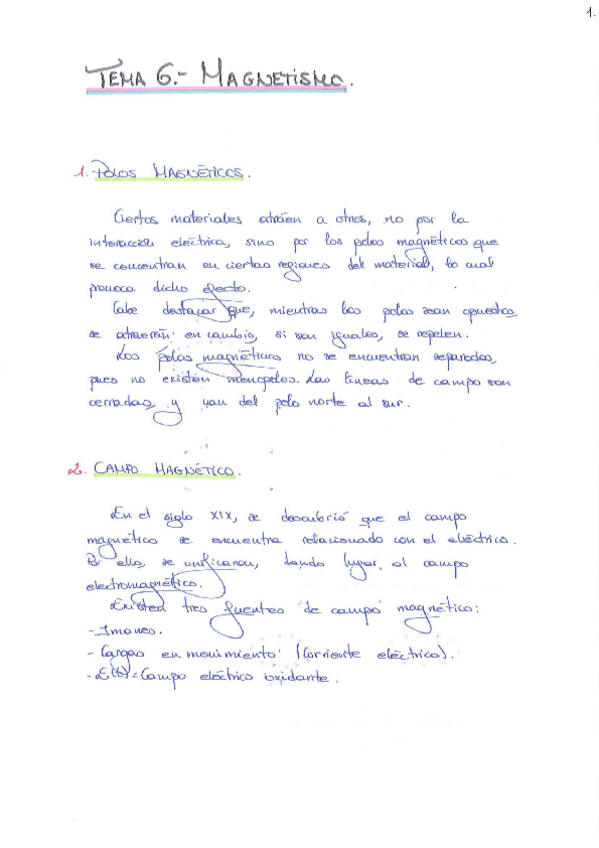 1.
TEMA 6.- MAGNETISMO.
1. POLOS MAGNÉTICOS.
Ciertos materiales atraen a otros, no por la
interacción eléctrica, sino por los polos magnéticos que
se concentran en ciertas regiones del material, lo cual
provoca dicho efecto.
Cabe destacar que, mientras los polos sean opuestos,
se atraerán; en cambio, si son iguales, se repelen.
Los polos magnéticos no se encuentran separados,
pues no existen monopolos. Las líneas de campo son
cerradas, y van del polo norte al sur.
2. CAMPO MAGNÉTICO.
En el siglo XIX, se descubrió que el campo
magnético se encuentra relacionado con el eléctrico.
Por ello, se unificaron, dando lugar, al campo
electromagnético.
Existen tres fuentes de campo magnético:
- Imanes.
- Cargas en movimiento (corriente eléctrica).
- E(t) = Campo eléctrico oxidante.